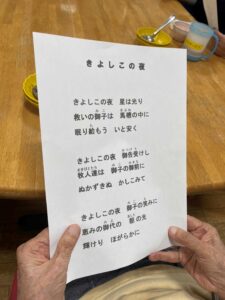 きよしこの夜
きよしこの夜　星は光り
救いの御子は　馬槽の中に
眠り給もう　いと安く
きよしこの夜　御告受けし
牧人達は　御子の御前に
ぬかずきぬ　かしこみて
きよしこの夜　御子の笑みに
恵みの御代の　朝の光
輝けり　ほがらかに